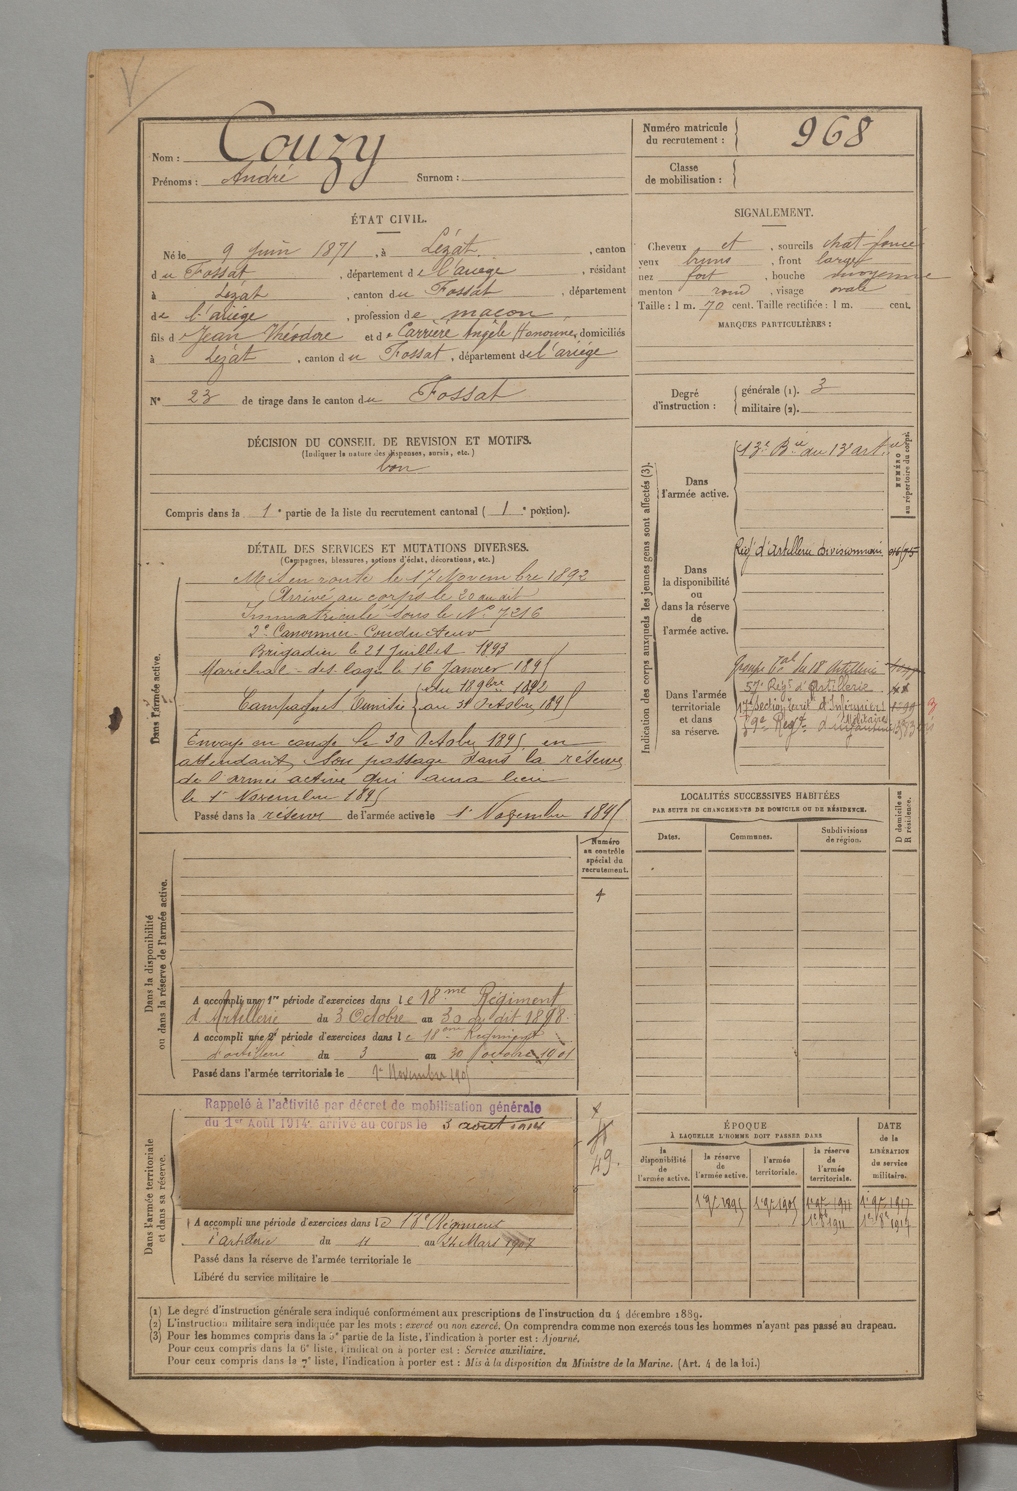 Nom : Couzy
Prénoms : André Surnom :
ÉTAT CIVIL.
Né le 9 Juin 1871, à Lézat, canton
du Fossat, département de l'ariège, résidant
à Lézat, canton du Fossat, département
de l'ariège, profession de maçon,
fils de Jean Théodore et de Carrière Angèle Honorine, domiciliés
à Lézat, canton du Fossat, département de l'ariége
N° 23 de tirage dans le canton du Fossat
DÉCISION DU CONSEIL DE REVISION ET MOTIFS.
(Indiquer la nature des dispenses, sursis, etc.)
bon
Compris dans la 1e partie de la liste du recrutement cantonal ( 1e portion).
DÉTAIL DES SERVICES ET MUTATIONS DIVERSES.
(Campagnes, blessures, actions d'éclat, décorations, etc.)
Dans l'armée active.
Mis en route le 17 Novembre 1892
Arrivé au corps le 20 au dit
Immatriculé sous le N° 7216
2e Canonnier-Conducteur
Brigadier le 21 Juillet 1893
Marechal-des logis le 16 Janvier 1895
Campagnes Tunisie { du 18 9bre 1892
au 31 Octobre 1895
Envoyé en congé le 30 Octobre 1895 en
attendant son passage dans la réserve
de l'armée active qui aura lieu
le 1er Novembre 1895
Passé dans la réserve de l'armée active le 1er Novembre 1895
Dans la disponibilité
ou dans la réserve de l'armée active.
Numéro
au contrôle
spécial du
recrutement.
A accompli une 1re période d'exercices dans le 18me Régiment
d'Artillerie du 3 Octobre au 30 du dit 1898.
A accompli une 2e période d'exercices dans le 18me Régiment
d'artillerie du 3 au 30 octobre 1901
Passé dans l'armée territoriale le 1er Novembre 1905
Dans l'armée territoriale
et dans sa réserve.
Rappelé à l'activité par décret de mobilisation générale
du 1er Août 1914 arrivé au corps le 3 août 1914
49.
A accompli une période d'exercices dans le 18e Régiment
d'artillerie du 11 au 24 Mars 1907
Passé dans la réserve de l'armée territoriale le
Libéré du service militaire le
Numéro matricule
du recrutement : 968
Classe
de mobilisation :
SIGNALEMENT.
Cheveux et, sourcils chat. foncé
yeux bruns, front large
nez fort, bouche moyenne
menton rond, visage ovale
Taille : 1 m. 70 cent. Taille rectifiée : 1 m. cent.
MARQUES PARTICULIÈRES :
Degré
d'instruction :
générale (1). 3
militaire (2).
Indication des corps auxquels les jeunes gens sont affectés (3).
NUMÉRO
au répertoire du corps.
Dans
l'armée active.
13e Bie au 13e artie
Dans
la disponibilité
ou
dans la réserve
de
l'armée active.
Régt d'Artillerie divisionnaire
Dans l'armée
territoriale
et dans
sa réserve.
Groupe Tal du 18 Artillerie
57e Régt d'Artillerie
17e Section Territ. d'Infirmiers
Militaires
59e Regt d'Infanterie
LOCALITÉS SUCCESSIVES HABITÉES
PAR SUITE DE CHANGEMENTS DE DOMICILE OU DE RÉSIDENCE.
D domicile ou
R résidence.
Dates. Communes. Subdivisions
de région.
ÉPOQUE
À LAQUELLE L'HOMME DOIT PASSER DANS
DATE
de la
LIBÉRATION
du service
militaire.
la
disponibilité
de
l'armée active.
la réserve
de
l'armée active.
l'armée
territoriale.
la réserve
de
l'armée
territoriale.
1er 9bre 1895 1er 9bre 1905 1er 9bre 1911 1er 9bre 1917
(1) Le degré d'instruction générale sera indiqué conformément aux prescriptions de l'instruction du 4 décembre 1889.
(2) L'instruction militaire sera indiquée par les mots : exercé ou non exercé. On comprendra comme non exercés tous les hommes n'ayant pas passé au drapeau.
(3) Pour les hommes compris dans la 5e partie de la liste, l'indication à porter est : Ajourné.
Pour ceux compris dans la 6e liste, l'indication à porter est : Service auxiliaire.
Pour ceux compris dans la 7e liste, l'indication à porter est : Mis à la disposition du Ministre de la Marine. (Art. 4 de la loi.)